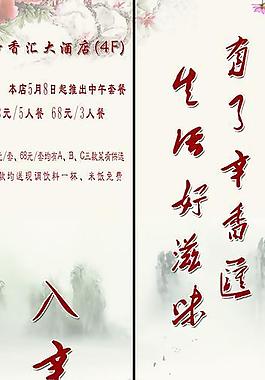 香汇大酒店(4F)
本店5月8日起推出中午套餐
元/5人餐 68元/3人餐
元/套、68元/套均有A、B、C三款菜肴供选
款均送现调饮料一杯、米饭免费
入辛
有了辛香匯
生活好滋味